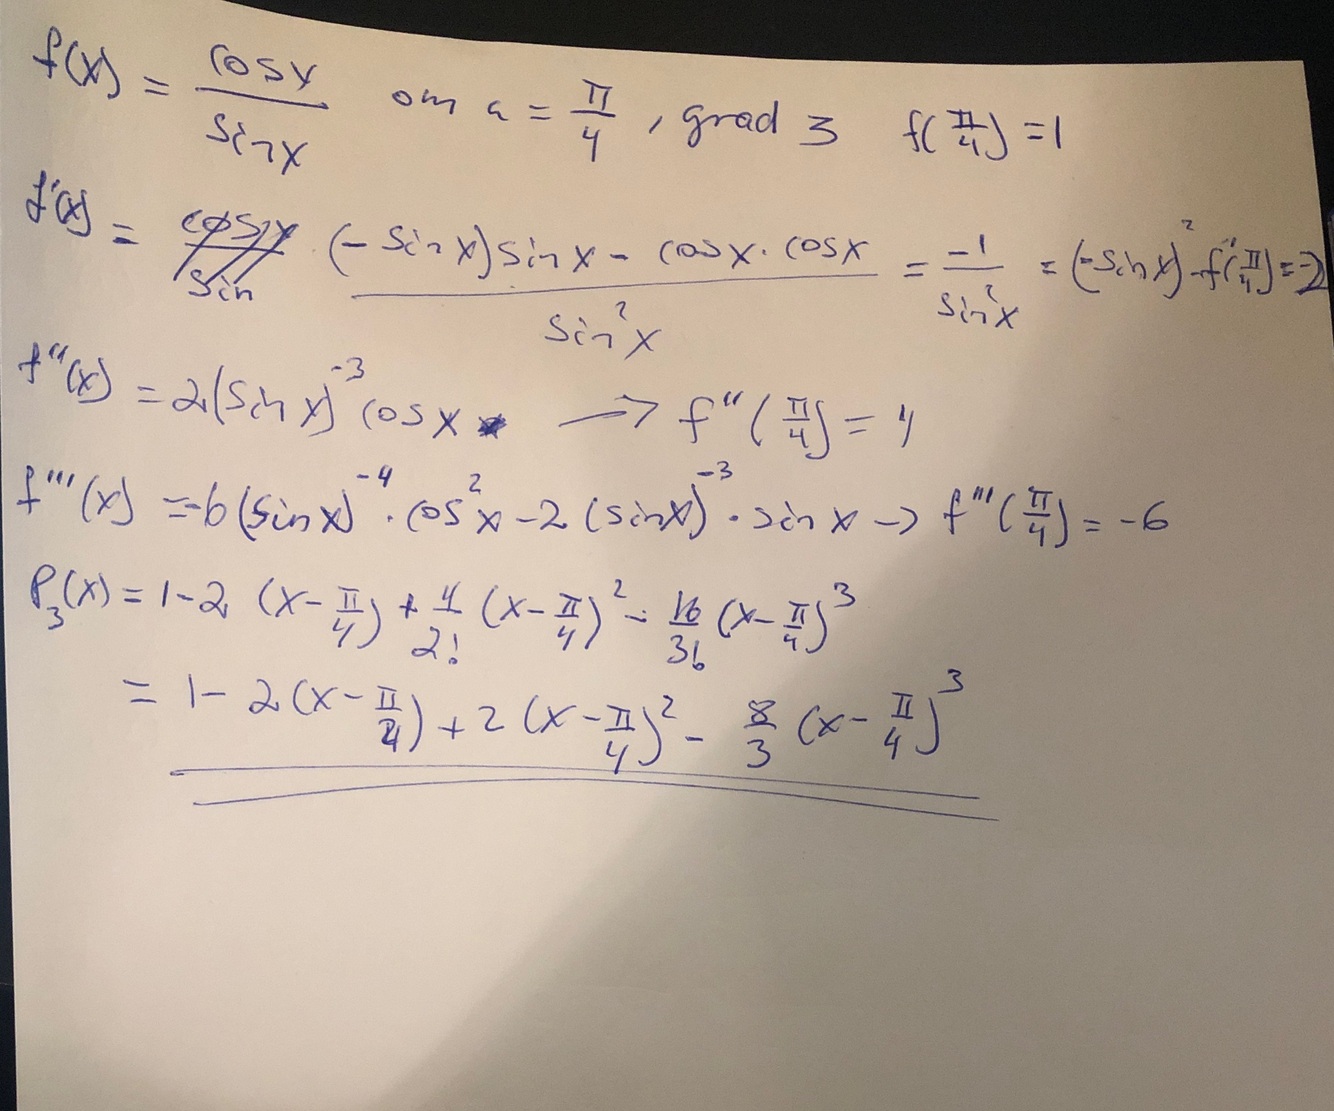 f(x) = cosx / sinx om a = π/4, grad 3 f(π/4) = 1
f'(x) = (-sinx)sinx - cosx·cosx / sin²x = -1 / sin²x = (-sinx)² - f'(π/4) = -2
f''(x) = 2(sinx)⁻³cosx → f''(π/4) = 4
f'''(x) = -6(sinx)⁻⁴·cos²x - 2(sinx)⁻³·sinx → f'''(π/4) = -6
P₃(x) = 1 - 2(x - π/4) + 4/2! (x - π/4)² - 16/3! (x - π/4)³
= 1 - 2(x - π/4) + 2(x - π/4)² - 8/3 (x - π/4)³